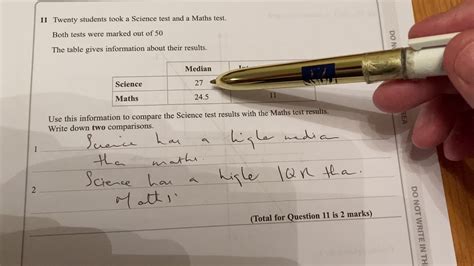 11 Twenty students took a Science test and a Maths test.
Both tests were marked out of 50
The table gives information about their results.
Median
Science 27
Maths 24.5 11
Use this information to compare the Science test results with the Maths test results.
Write down two comparisons.
1 Science has a higher median
tha maths
2 Science has a higher IQR tha
Maths.
(Total for Question 11 is 2 marks)
DO NOT WRITE IN TH